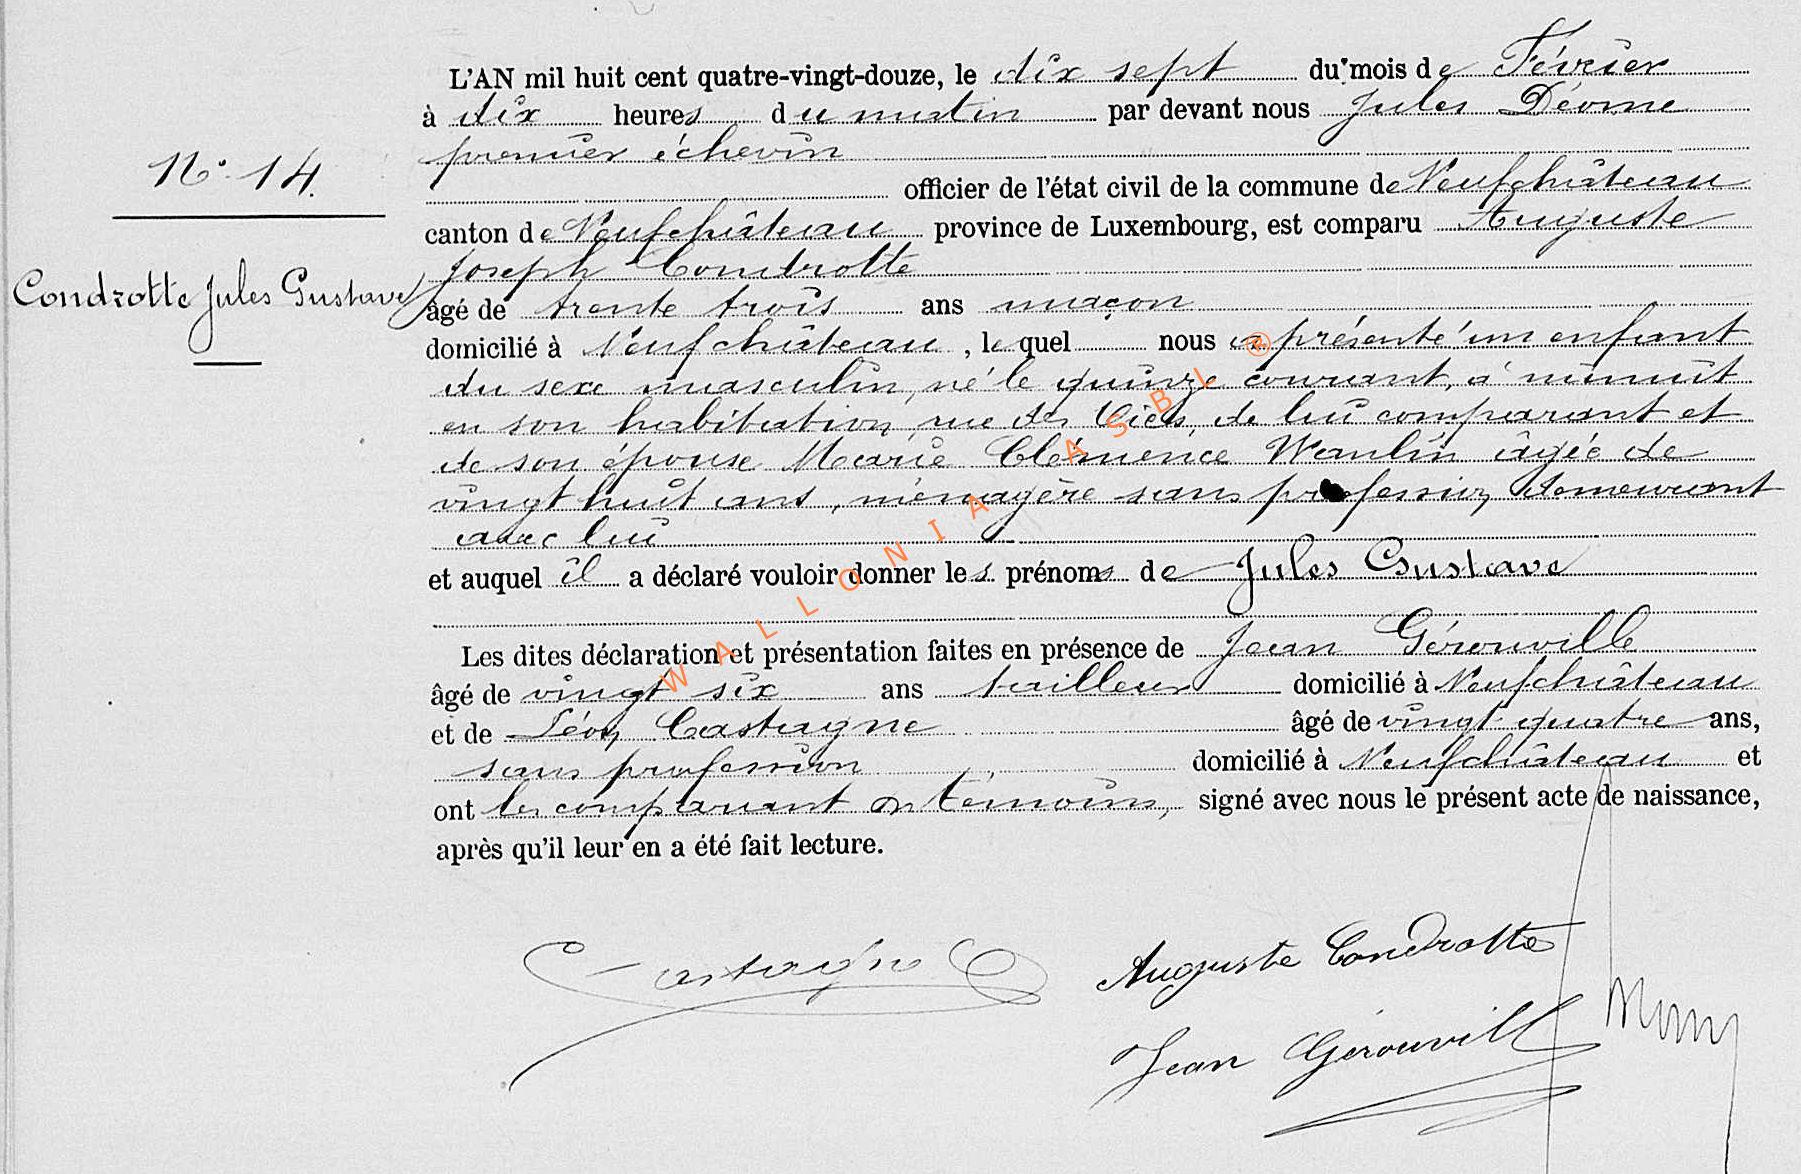 L'AN mil huit cent quatre-vingt-douze, le dix sept du mois de Février
à dix heures du matin par devant nous Jules
premier échevin
N° 14.
officier de l'état civil de la commune de Neufchâteau
canton de Neufchâteau province de Luxembourg, est comparu Auguste
Joseph Condrotte
Condrotte Jules Gustave
âgé de trente trois ans maçon
domicilié à Neufchâteau, lequel nous a présenté un enfant
du sexe masculin, né le quinze courant, à minuit
en son habitation, rue des de lui comparant et
de son épouse Marie Clémence Wanlin âgée de
vingt huit ans, ménagère sans profession demeurant
avec lui
et auquel il a déclaré vouloir donner les prénoms de Jules Gustave
Les dites déclaration et présentation faites en présence de Jean Gérouville
âgé de vingt six ans tailleur domicilié à Neufchâteau
et de Léon Castagne âgé de vingt quatre ans,
sans profession domicilié à Neufchâteau et
ont les comparant et témoins, signé avec nous le présent acte de naissance,
après qu'il leur en a été fait lecture.
Castagne
Auguste Condrotte
Jean Gérouville
WALLONIA ASBL ®